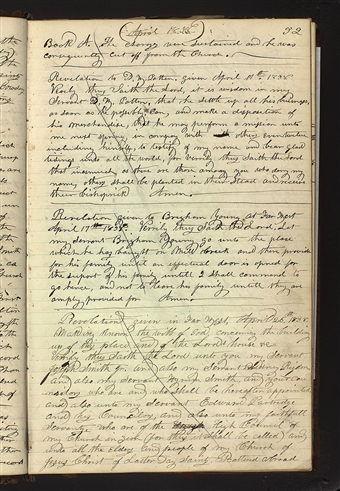 April 1838
32
Book A. The charges were sustained and he was
consequently cut off from the Church.
Revelation to D. W. Patten, given April 11th 1838
Verily thus Saith the Lord, it is wisdom in my
Servant D. W. Patten, that he settle up all his business,
as soon as he possibly can, and make a disposition of
his merchandise, that he may perform a mission unto
me next spring, in company with others even twelve
including himself, to testify of my name and bear glad
tidings unto all the world, for verily thus Saith the Lord
that inasmuch as there are those among you who deny my
name, others shall be planted in their stead and receive
their bishoprick Amen.
Revelation given to Brigham Young at Far West
April 17th 1838. Verily thus Saith the Lord, Let
my Servant Brigham Young go unto the place
which he has bought on Mill Creek and there provide
for his family until an effectual door is opened for
the support of his family until I shall command to
go hence, and not to leave his family until they are
amply provided for Amen.
Revelation given in Far West, April 26th 1838.
Making known the will of God, concerning the building
up of this place and of the Lord's house &c
Verily thus Saith the Lord unto you my Servant
Joseph Smith Jr. and also my Servant Sidney Rigdon
and also my Servant Hyrum Smith, and your
who are and who shall be hereafter appointed
and also unto my Servant Edward Partridge
and his Councilors, and also unto my faithful
Servants, who are of the High Council of
my Church in Zion (for thus it shall be called) and
unto all the Elders and people of my Church of
Jesus Christ of Latter Day Saints, Scattered abroad